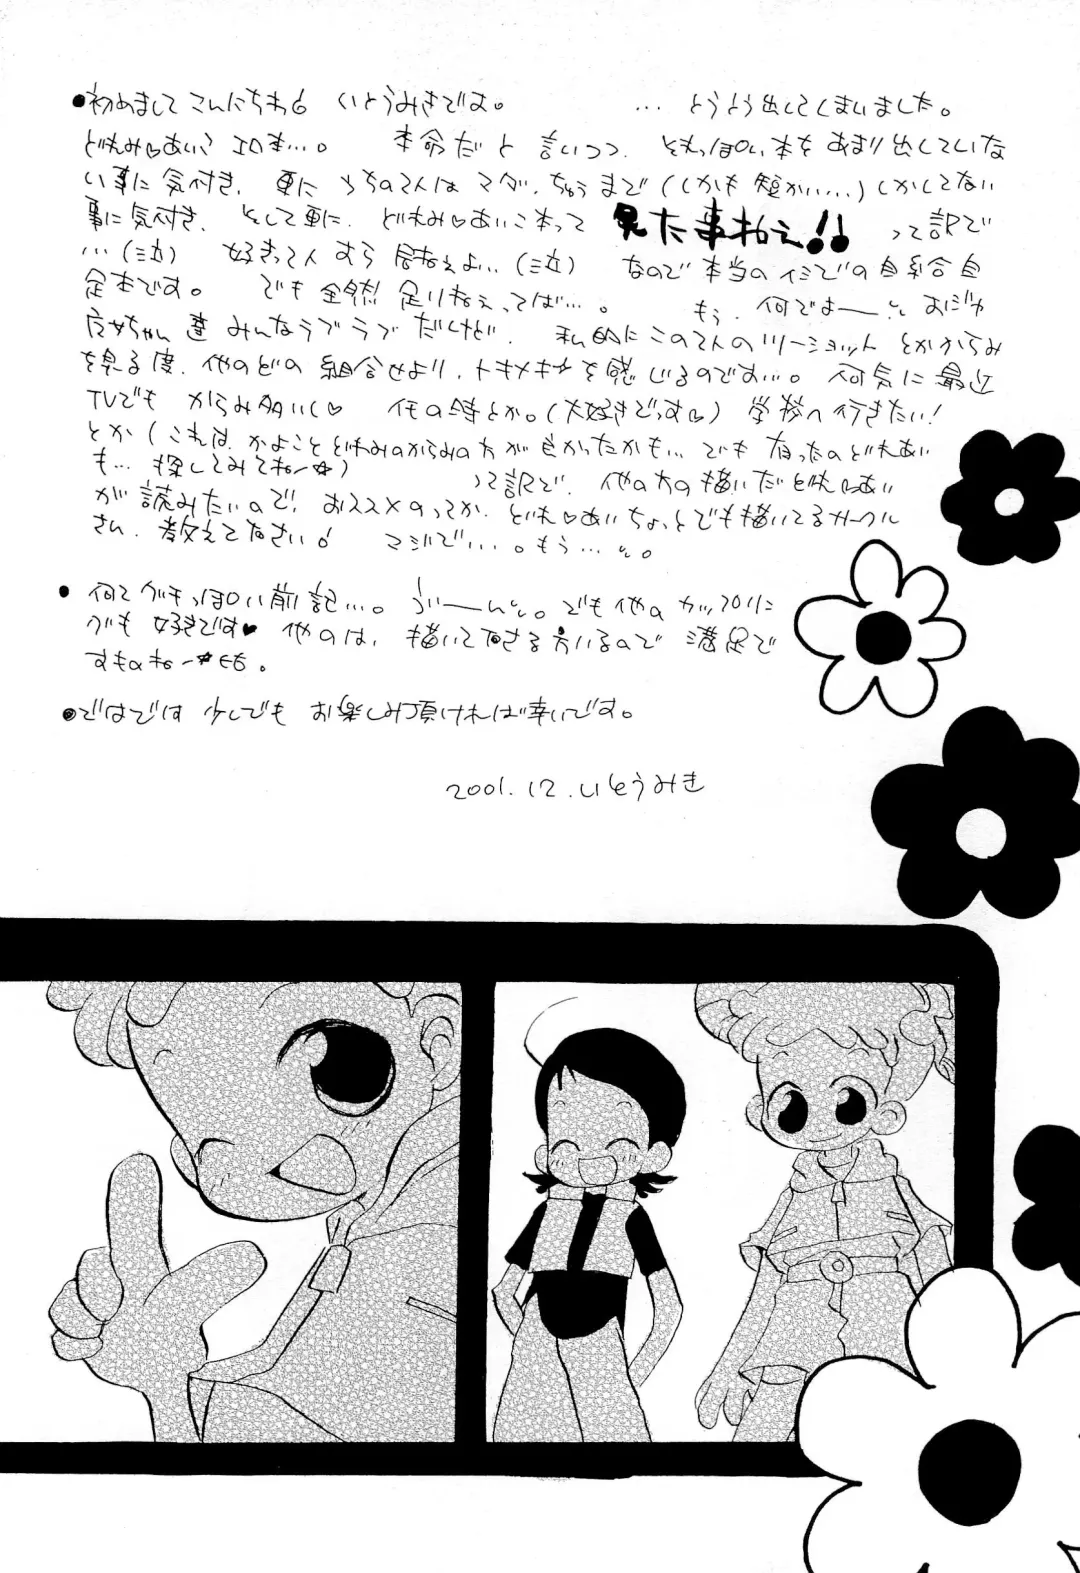 ●初めまして こんにちわ🖒 いとうみきです。 … とうとう出してしまいました。
どれみ♡あいこ エロ本…。 本命だ と 言いつつ、 それっぽい本を あまり出していな
い事に気付き、更に うちの2人は マダ、ちゅうまで(しかも 短かい…)しかしてない
事に気付き、 そして更に、 どれみ♡あいこ本って 見た事ねぇ!! って訳で
…(泣) 好きって人 すら 居ねぇよ…(泣) なので本当のイミでの自給自
足本です。 でも 全然 足りねぇってば…。 もぅ、何でよーー
達 みんなラブラブ だけど、 私的に この2人のツーショット とかからみ
を見る度、他のどの 組合せより、トキメキを感じるのです…。 何気に最近
TVでも からみ多いし♡ 任の時とか。(大好きでっす♡) 学校へ行きたい!
とか(これは、かよこと どれみのからみの方が良かったかも… でも 有ったのどれあい
も… 探してみてねー☆) って訳で、他の方の描いた どれ♡あい
が読みたいので、 おススメのってか、どれ♡あい ちょっとでも描いてるサークル
さん、教えて下さい! マジで…。もぅ…。
● 何て グチっぽい前記…。 うぃーー でも 他の カップリン
グも 好きです♥ 他のは、描いて下さる方いるので 満足で
すものねー☆
●ではでは 少しでも お楽しみ頂ければ幸いです。
2001.12.いとうみき